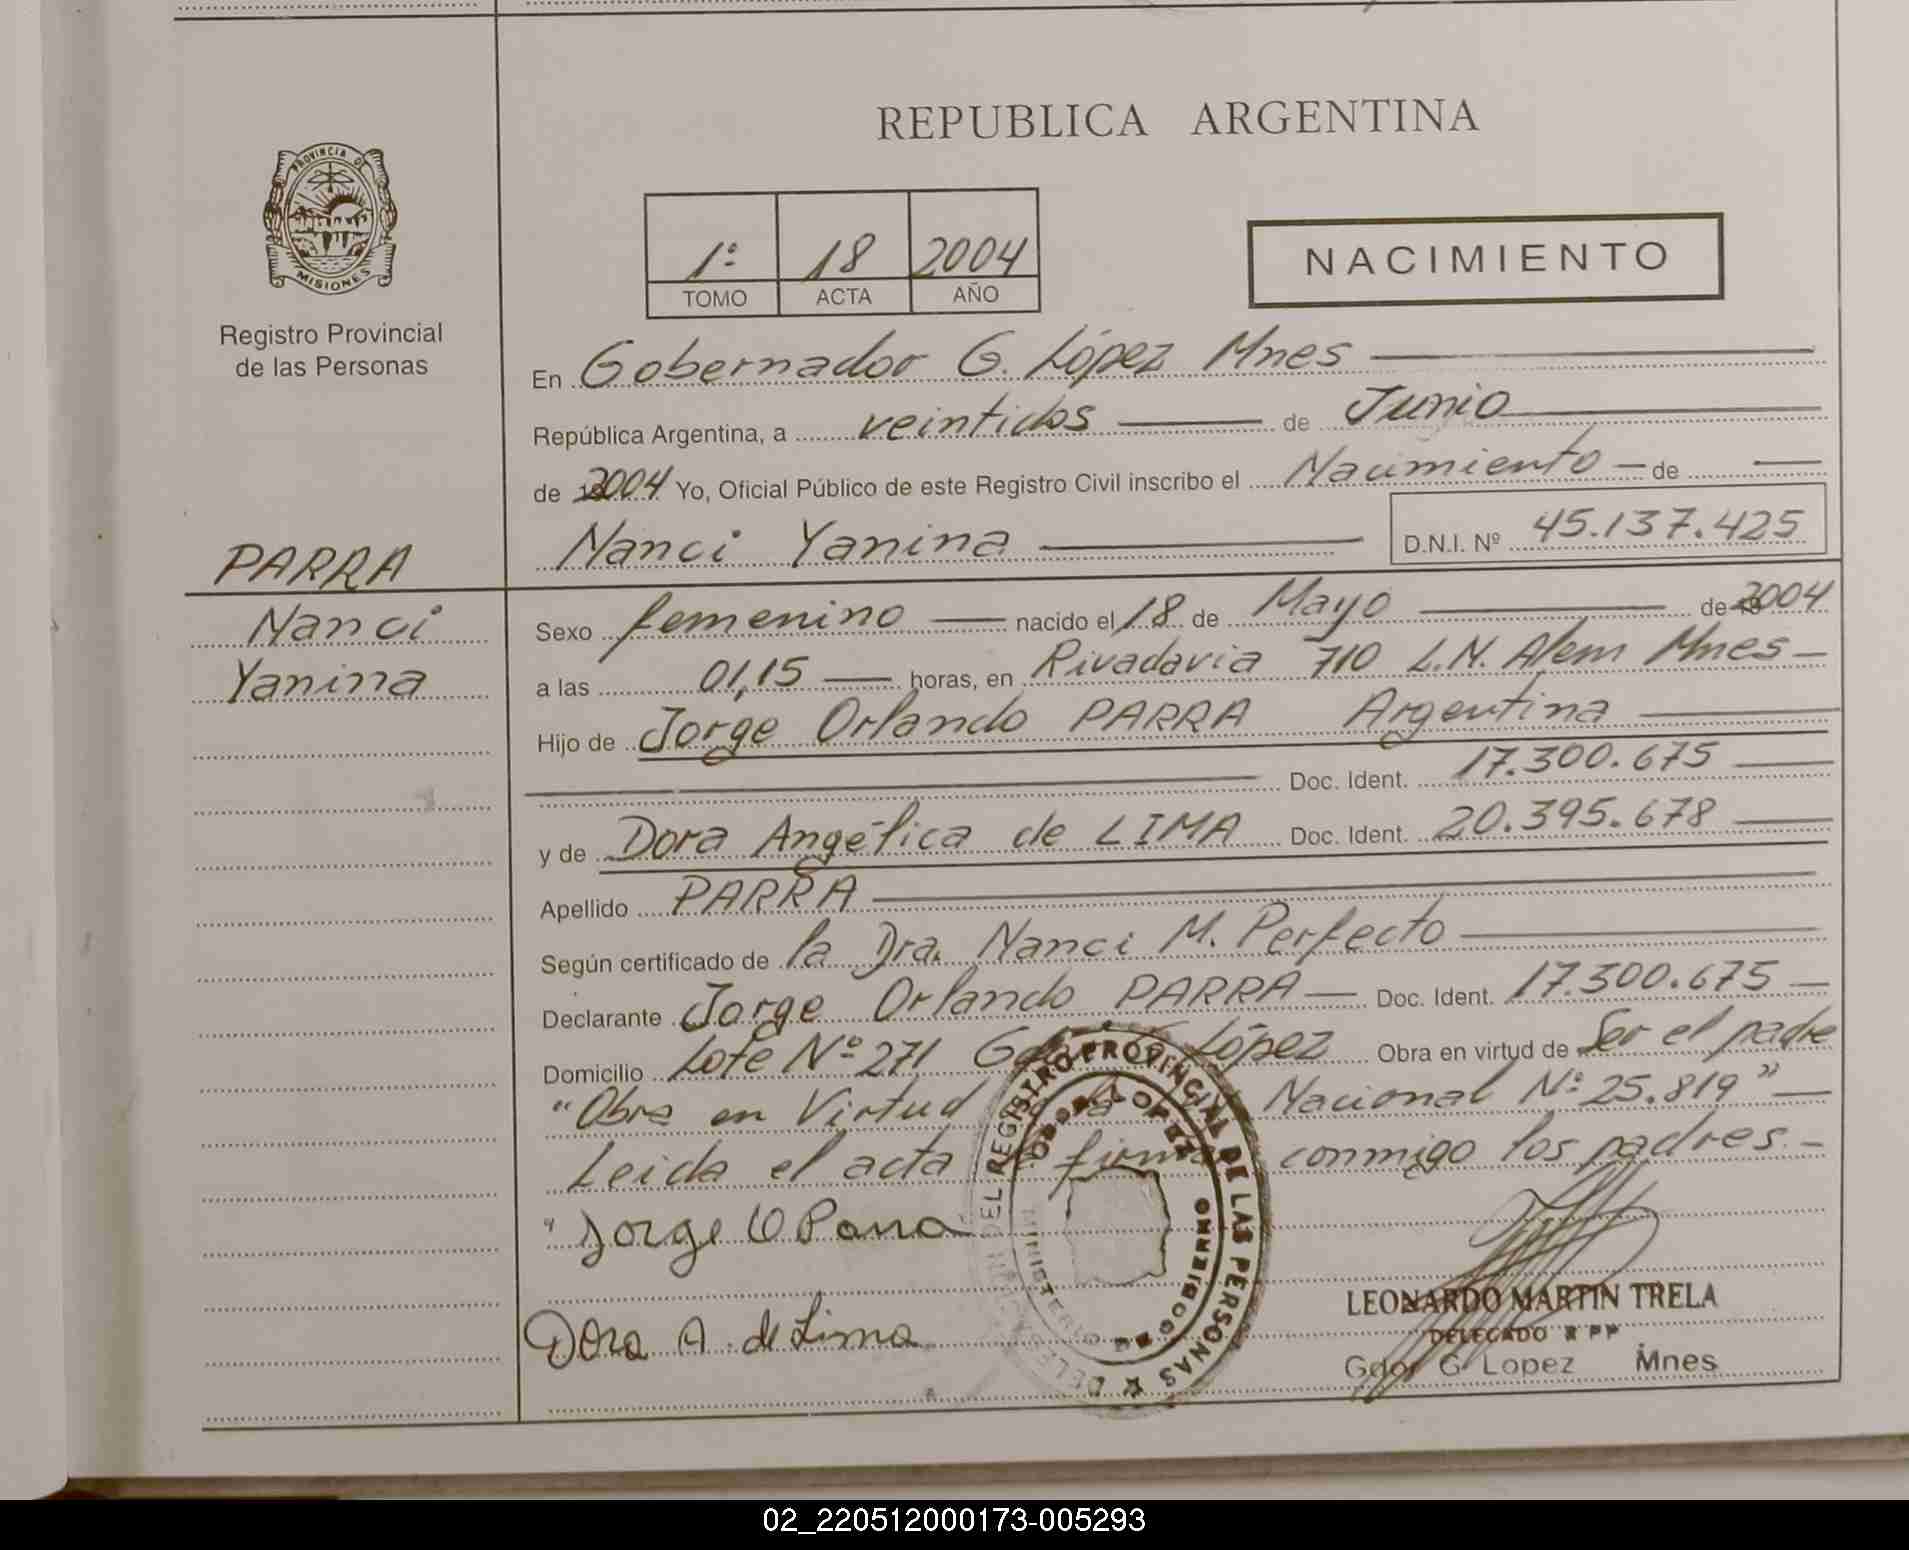 REPUBLICA ARGENTINA
PROVINCIA DE
MISIONES
Registro Provincial
de las Personas
1º 18 2004
TOMO ACTA AÑO
NACIMIENTO
En Gobernador G. López Mnes
República Argentina, a veintidos de Junio
de 2004 Yo, Oficial Público de este Registro Civil inscribo el Nacimiento de
Nanci Yanina D.N.I. Nº 45.137.425
PARRA
Nanci
Yanina
Sexo femenino nacido el 18 de Mayo de 2004
a las 01,15 horas, en Rivadavia 710 L.N. Alem Mnes
Hijo de Jorge Orlando PARRA Argentina
Doc. Ident. 17.300.675
y de Dora Angélica de LIMA Doc. Ident. 20.395.678
Apellido PARRA
Según certificado de la Dra. Nanci M. Perfecto
Declarante Jorge Orlando PARRA Doc. Ident. 17.300.675
Domicilio Lote Nº 271 López Obra en virtud de Ser el padre
"Obra en Virtud Nacional Nº 25.819"
Leida el acta conmigo los padres.
Jorge O Parra
Dora A. de Lima
DEL REGISTRO PROVINCIAL DE LAS PERSONAS
LOPEZ
MINISTERIO DE GOBIERNO
LEONARDO MARTIN TRELA
DELEGADO R P P
Gdor G Lopez Mnes
02_220512000173-005293